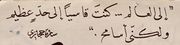 "إلى العالم... كنتَ قاسياً إلى حدٍ عظيم
ولكنّي أسامح."